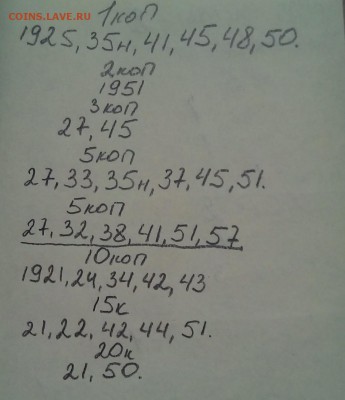 COINS.SU.RU
1коп
1925, 35н, 41, 45, 48, 50.
2коп
1951
3коп
27, 45
5коп
27, 33, 35н, 37, 45, 51.
5коп
27, 32, 38, 41, 51, 57
10коп
1921, 24, 34, 42, 43
15к
21, 22, 42, 44, 51.
20к
21, 50.